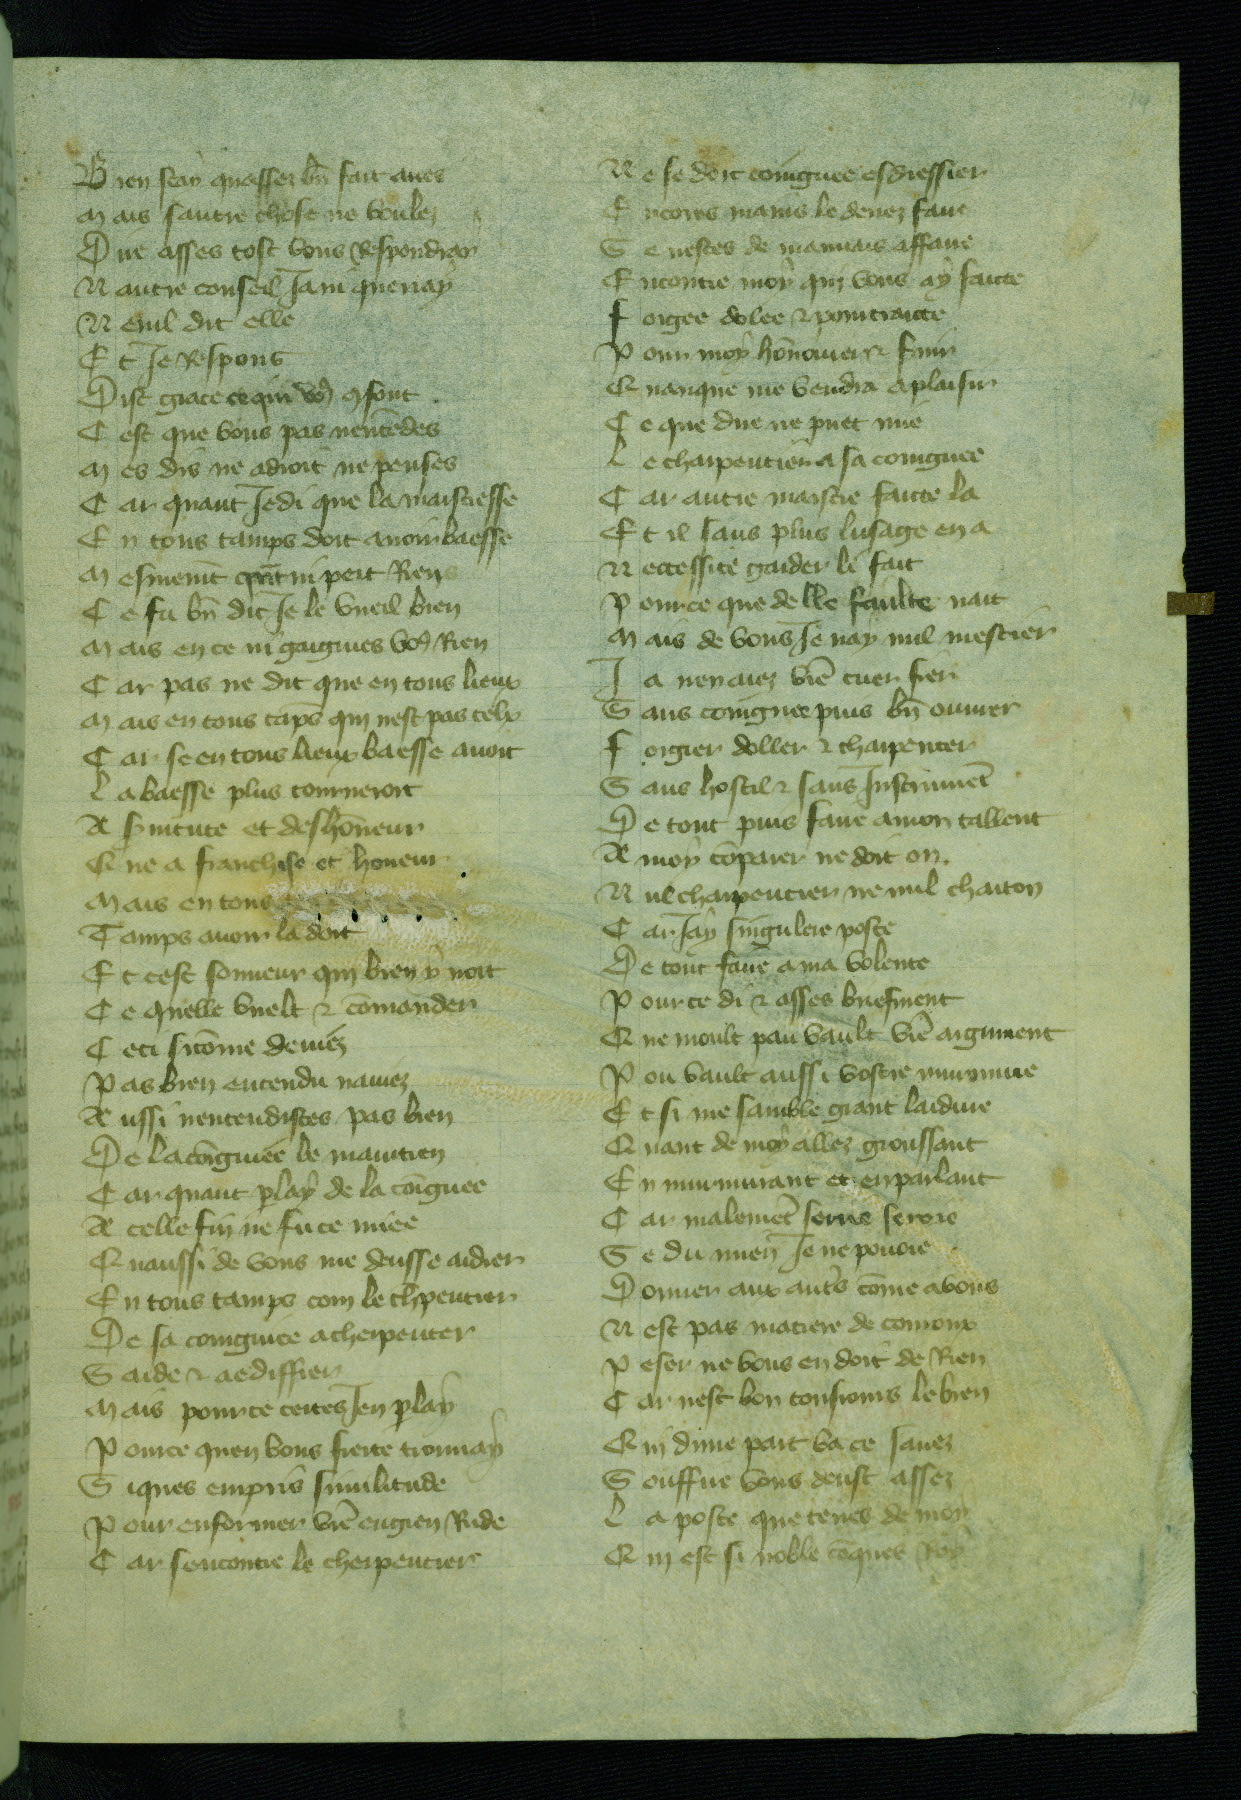 Bien scay quassez bn̄ fait aues
Mais sautre chose ne voulez
Que asses tost vous Respondray
Nautre conseil Jam̄ quenay
Nenil dit elle
Et Je Respons
Dist grace ce qui voꝰ mfont
Cest que vous pas nentēdes
Mes dis ne adroit ne penses
Car quant Je di que la maistresse
En tous tamps doit auoir baesse
Mesmemt̄ qnt̄ ni pert Riens
Ce fu bn̄ dit Je le vueil bien
Mais en ce ni gaignies voꝰ Rien
Car pas ne dit que en tous lieux
Mais en tous tāps qui nest pas telx
Car se en tous lieux baesse auoit
La baesse plus tourneroit
A s̄uitute et deshōneur
Que a franchise et honeur
Mais en tous
Tamps auoir la doit
Et cest sonneur qui bien y voit
Ce quelle vuelt ⁊ cōmander
Ceci sicōme deuez
Pas bien entendu nauez
Aussi nentendistes pas bien
De la cōigniee le maintien
Car quant p̄lay de la cōignee
A celle fin ne fu ce miee
Quaussi de vous me deusse aidier
En tous tamps com le chp̄entier
De sa coingniee a cherpenter
Saide ⁊ a ediffier
Mais pource certes Jen p̄lay
Pource quen vous fierte trouuay
Siques empris similitude
Pour enformer vrē engien Rude
Car sencontre le cherpentier
Ne se doit coingnee esdressier
Encores mains le deuez faire
Se nestes de mauuais affaire
Encontre moy qui vous ay faitte
Forgee dolee ⁊ pourtraitte
Pour moy hōnourer ⁊ seruir
Quanque me vendra a plaisir
Ce que dire ne puet mie
Le charpentier a sa coingnee
Car autre maistre faitte la
Et il sans plus lusage en a
Neccessite garder le fait
Pource que delle faulte nait
Mais de vous Je nay nul mestier
Ja nen aiez vrē cuer fier
Sans coingniee puis bn̄ ouurer
Forgier doller ⁊ charpenter
Sans hostil ⁊ sans Instrumēt
De tout puis faire a mon tallent
A moy cōparer ne doit on.
Nul charpentier ne nul charton
Car Jay singulere poste
De tout faire a ma volente
Pource di ⁊ asses briefment
Que moult pau vault vrē argument
Pou vault aussi vostre murmure
Et si me samble grant laidure
Quant de moy allez groussant
En murmurant et en parlant
Car malemēt serue seroie
Se du mien Je ne pouoie
Donner aux autr̄s cōme a vous
Nest pas matiere de corroux
Peser ne vous en doit de Rien
Car nest bon tousiours le bien
Qui dune part va ce sauez
Souffire vous deust assez
La poste que tenes de moy
Qui est si noble cōques Roy